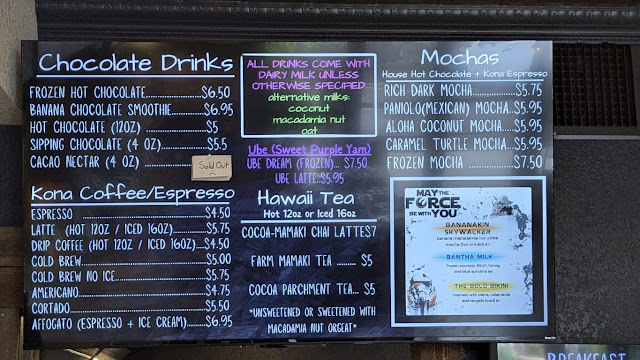 Chocolate Drinks
FROZEN HOT CHOCOLATE...............$6.50
BANANA CHOCOLATE SMOOTHIE.........$6.95
HOT CHOCOLATE (12OZ) ...............$5
SIPPING CHOCOLATE (4 OZ)............$5.5
CACAO NECTAR (4 OZ) ...............
Sold Out
Kona Coffee/Espresso
ESPRESSO ...............$4.50
LATTE (HOT 12OZ / ICED 16OZ)........$5.75
DRIP COFFEE (HOT 12OZ / ICED 16OZ)..$4.50
COLD BREW...............$5.00
COLD BREW NO ICE...............$5.75
AMERICANO...............$4.75
CORTADO...............$5.50
AFFOGATO (ESPRESSO + ICE CREAM).....$6.95
ALL DRINKS COME WITH
DAIRY MILK UNLESS
OTHERWISE SPECIFIED
alternative milks:
coconut
macadamia nut
oat
Ube (Sweet Purple Yam)
UBE DREAM (FROZEN)... $7.50
UBE LATTE..$5.95
Hawaii Tea
Hot 12oz or Iced 16oz
COCOA-MAMAKI CHAI LATTES7
FARM MAMAKI TEA ......... $5
COCOA PARCHMENT TEA... $5
*UNSWEETENED OR SWEETENED WITH
MACADAMIA NUT ORGEAT*
Mochas
House Hot Chocolate + Kona Espresso
RICH DARK MOCHA...........$5.75
PANIOLO(MEXICAN) MOCHA..$5.95
ALOHA COCONUT MOCHA......$5.95
CARAMEL TURTLE MOCHA...$5.95
FROZEN MOCHA ............$7.50
MAY THE
FORCE
BE WITH YOU
BANANAKIN
SKYWALKER
banana macadamia nut white
mocha (hot or iced) $9
BANTHA MILK
THE GOLD BIKINI
BREAKFAST